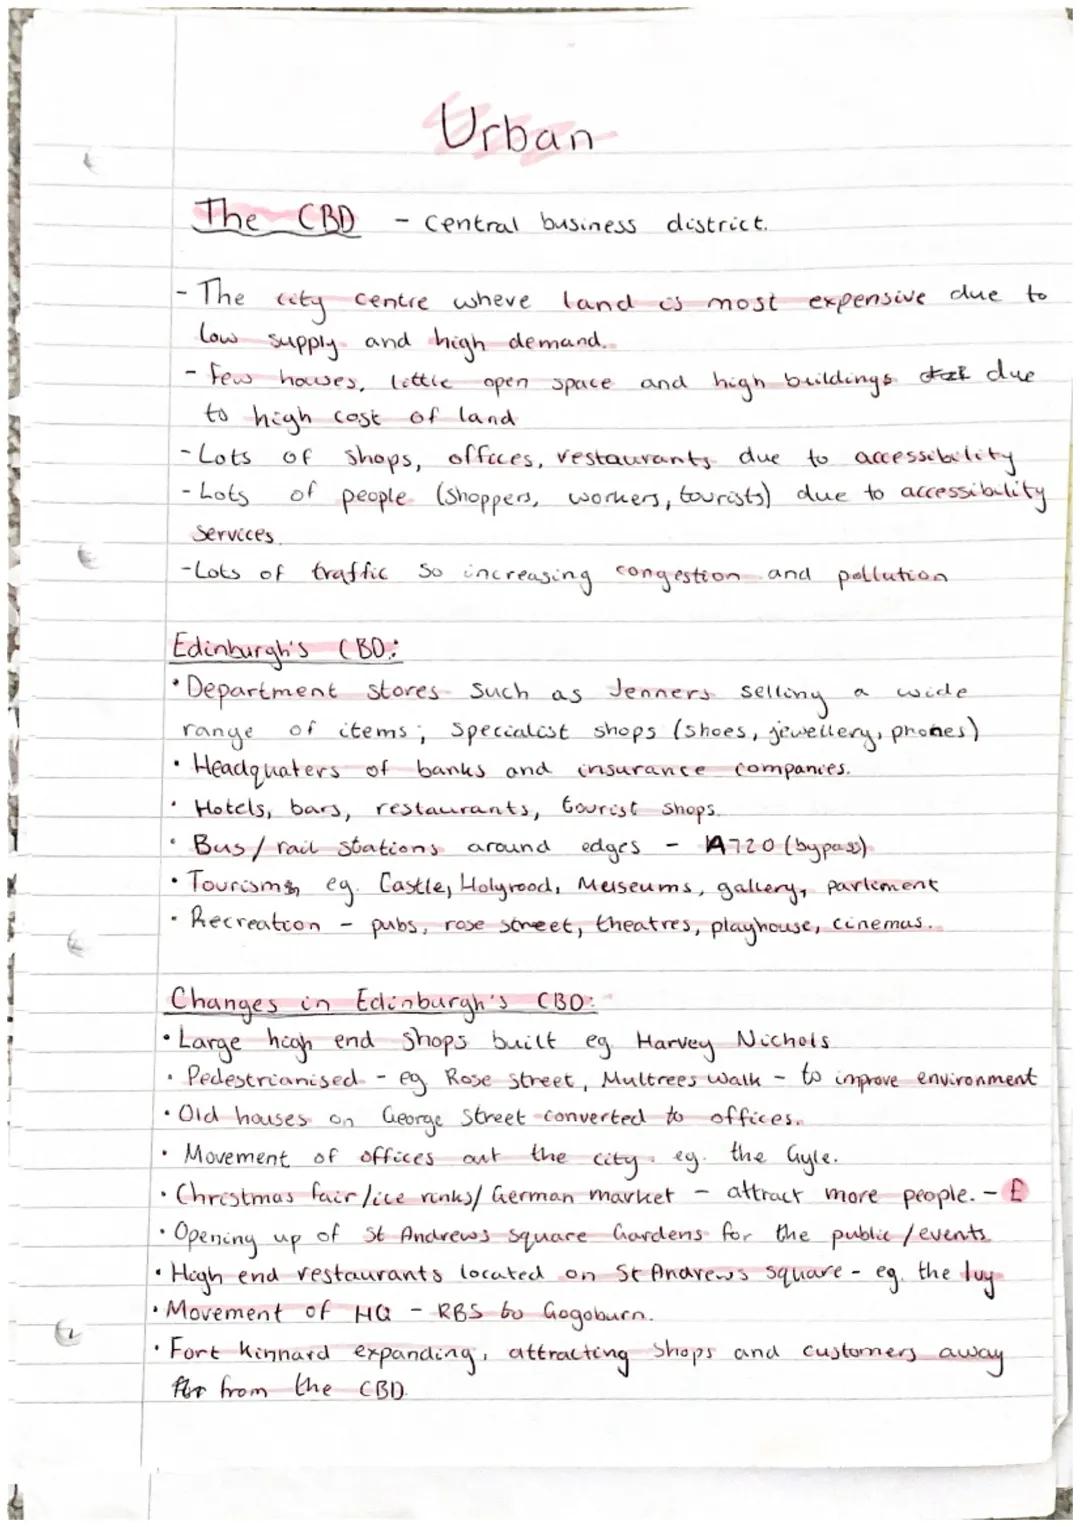 Urban
The CBD - central business district.
- The city centre where land is most expensive due to
low supply and high demand.
- few houses, little open space and high buildings due
to high cost of land
- Lots of shops, offices, restaurants due to accessibility
- Lots of people (shoppers, workers, tourists) due to accessibility
services.
- Lots of traffic so increasing congestion and pollution
Edinburgh's CBD:
• Department stores such as Jenners selling a wide
range of items; specialist shops (shoes, jewellery, phones)
• Headquaters of banks and insurance companies.
• Hotels, bars, restaurants, tourist shops.
• Bus/rail stations around edges - A720 (bypass)
• Tourism eg. Castle, Holyrood, Museums, gallery, parliment
• Recreation - pubs, rose street, theatres, playhouse, cinemas.
Changes in Edinburgh's CBD:
• Large high end shops built eg Harvey Nichols
• Pedestrianised - eg Rose street, Multrees walk - to improve environment
• Old houses on George Street converted to offices.
• Movement of offices out the city. eg. the Gyle.
• Christmas fair/ice rinks/German market - attract more people. - £
• Opening up of St Andrews square Gardens for the public/events
• High end restaurants located on St Andrews square - eg. the Ivy
• Movement of HQ - RBS to Gogoburn.
• Fort Kinnard expanding, attracting shops and customers away
from the CBD.